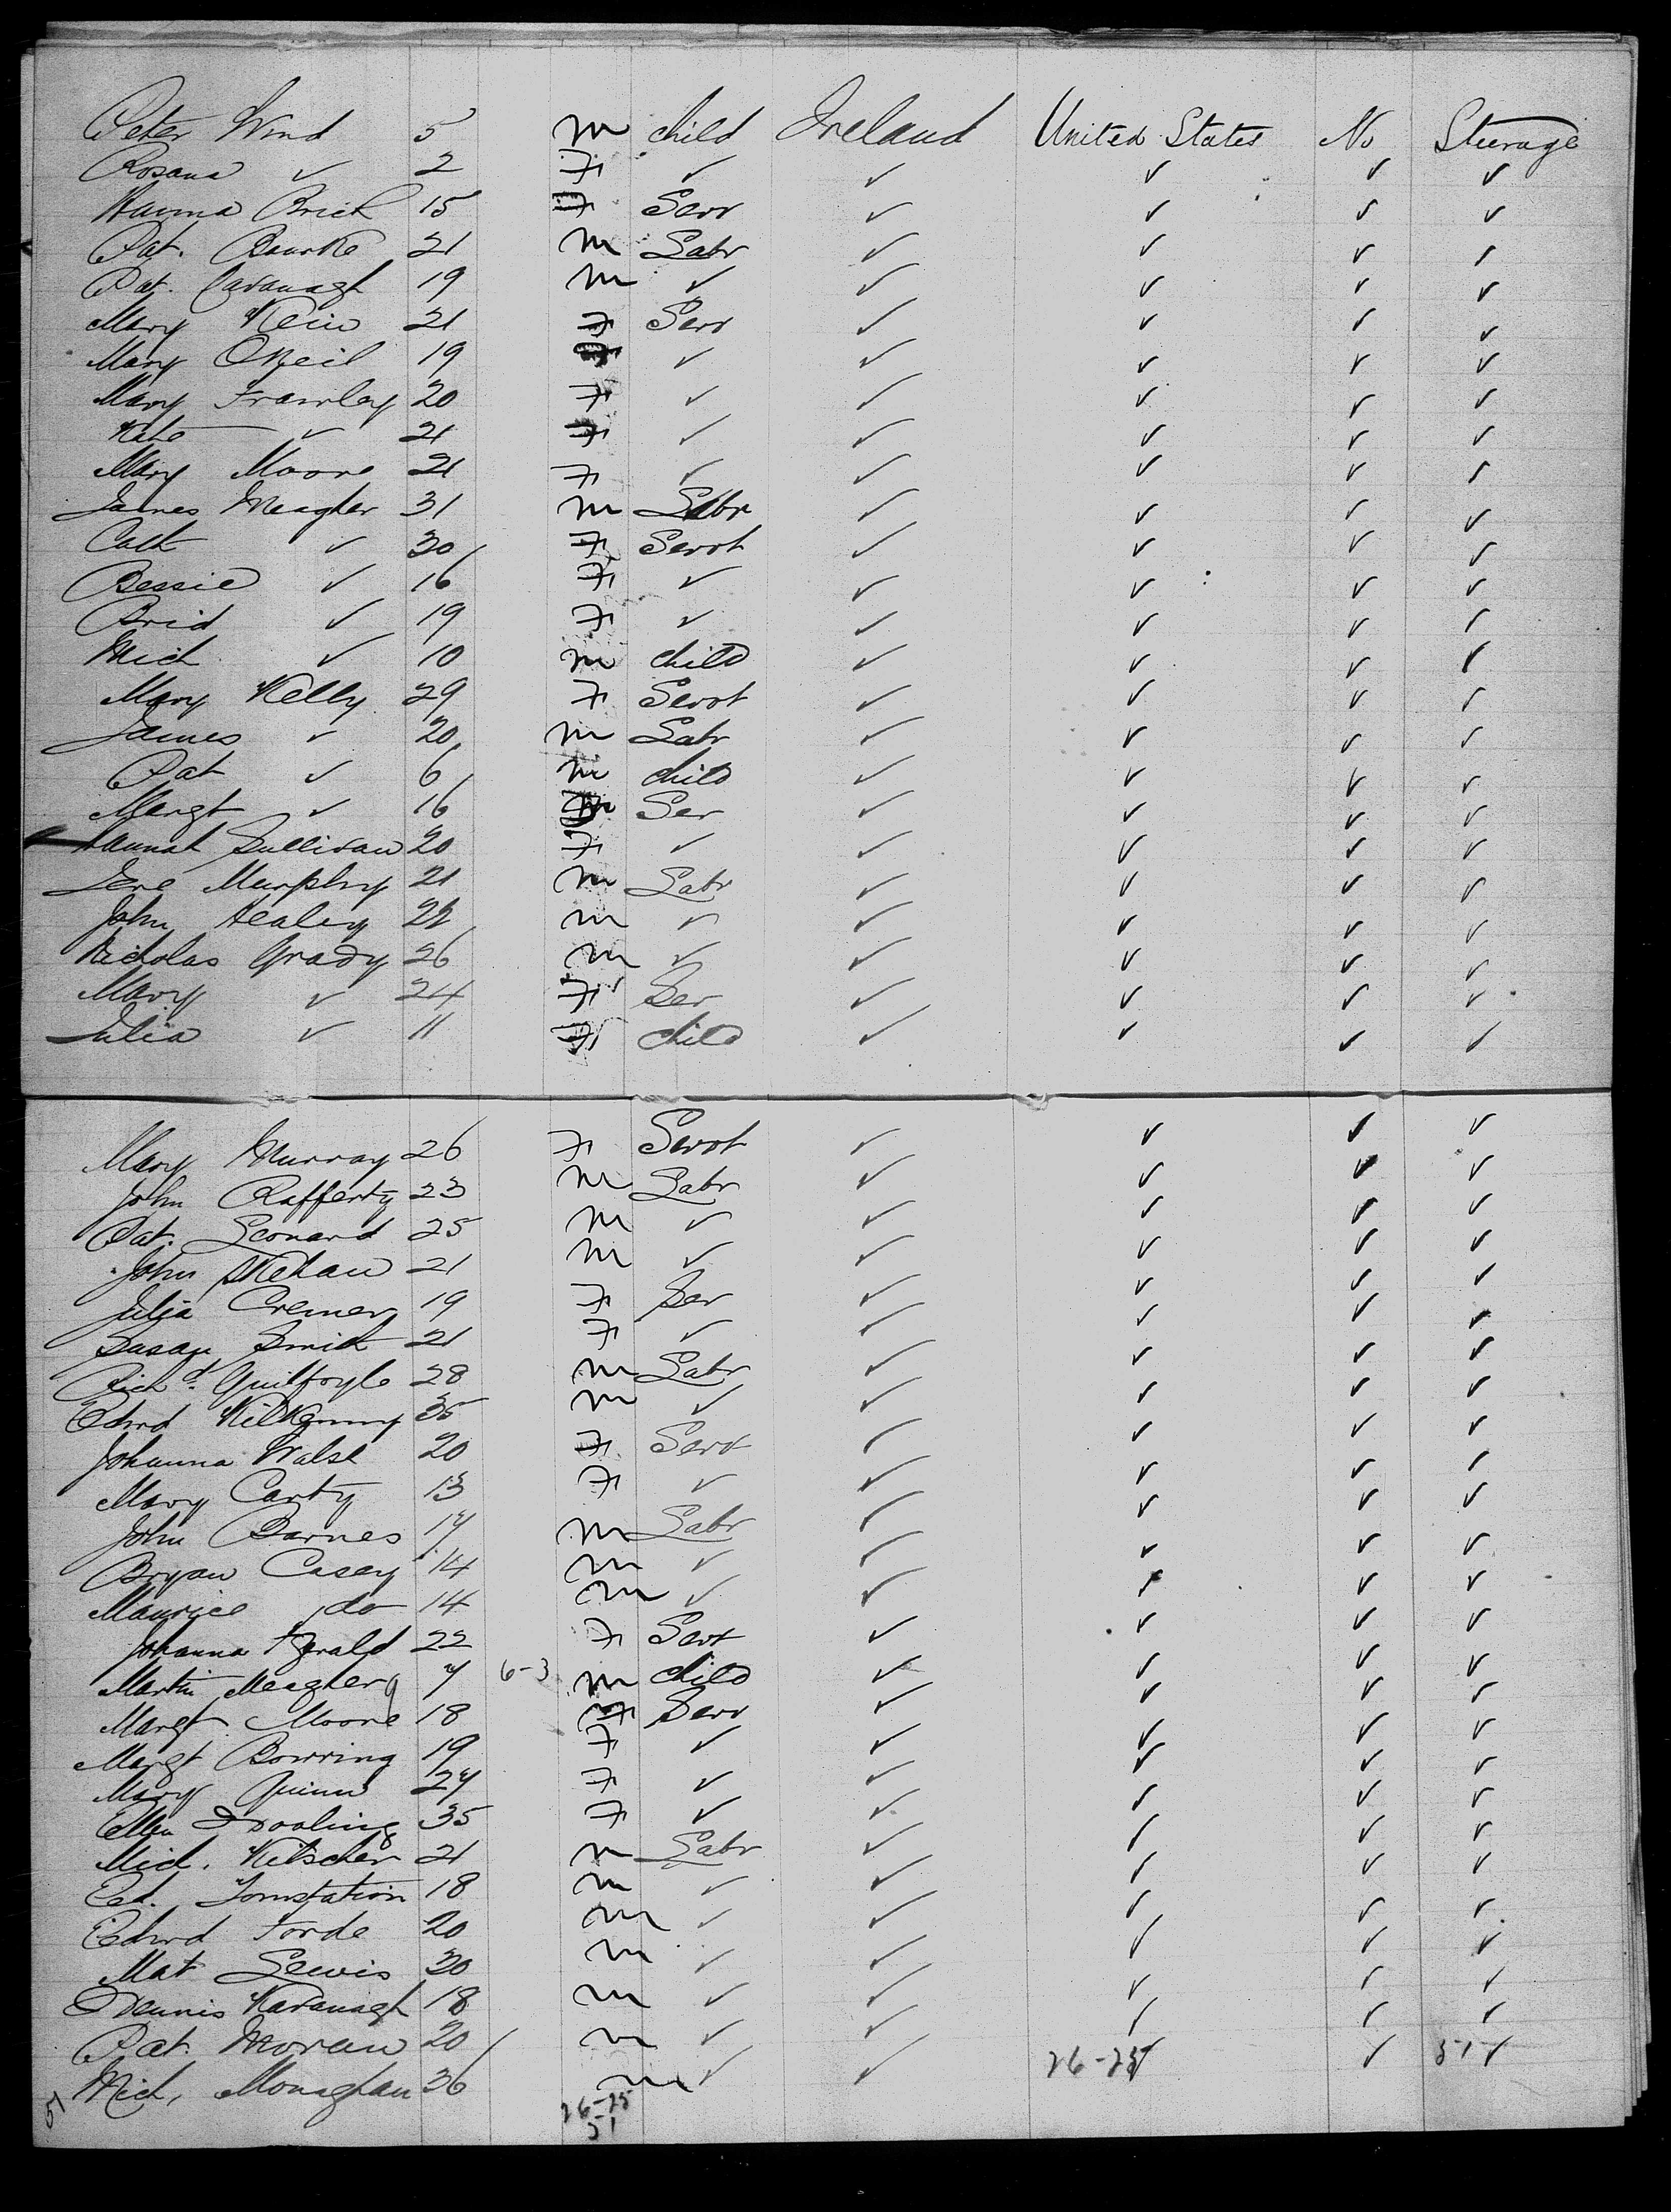 Peter Wind 5 m child Ireland United States No Steerage
Rosana ✓ 2 F ✓ ✓ ✓ ✓ ✓
Hanna Brick 15 F Serv ✓ ✓ ✓ ✓
Pat. Bourke 21 m Labr ✓ ✓ ✓ ✓
Pat. Cavanagh 19 m ✓ ✓ ✓ ✓ ✓
Mary 21 F Serv ✓ ✓ ✓ ✓
Mary ONeil 19 ✓ ✓ ✓ ✓ ✓
Mary Frawley 20 F ✓ ✓ ✓ ✓ ✓
Kate ✓ 21 F ✓ ✓ ✓ ✓ ✓
Mary Moore 21 F ✓ ✓ ✓ ✓ ✓
James Meagher 31 m Labr ✓ ✓ ✓ ✓
Cath ✓ 30 F Servt ✓ ✓ ✓ ✓
Bessie ✓ 16 F ✓ ✓ ✓ ✓ ✓
Brid ✓ 19 F ✓ ✓ ✓ ✓ ✓
Mich ✓ 10 m child ✓ ✓ ✓ ✓
Mary Kelly 29 F Servt ✓ ✓ ✓ ✓
James ✓ 20 m Labr ✓ ✓ ✓ ✓
Pat ✓ 6 m child ✓ ✓ ✓ ✓
Margt ✓ 16 Ser ✓ ✓ ✓ ✓
Hannah Sullivan 20 F ✓ ✓ ✓ ✓ ✓
Jere Murphy 21 m Labr ✓ ✓ ✓ ✓
John Healey 22 m ✓ ✓ ✓ ✓ ✓
Nicholas Grady 26 m ✓ ✓ ✓ ✓ ✓
Mary ✓ 24 F Ser ✓ ✓ ✓ ✓
Julia ✓ 11 F child ✓ ✓ ✓ ✓
Mary Murray 26 F Servt ✓ ✓ ✓ ✓
John Rafferty 23 m Labr ✓ ✓ ✓ ✓
Pat. Leonard 25 m ✓ ✓ ✓ ✓ ✓
John Skehan 21 m ✓ ✓ ✓ ✓ ✓
Julia Cremer 19 F Ser ✓ ✓ ✓ ✓
Susan Smith 21 F ✓ ✓ ✓ ✓ ✓
Richd. Guilfoyle 28 m Labr ✓ ✓ ✓ ✓
Edwd Kilkenny 35 m ✓ ✓ ✓ ✓ ✓
Johanna Walsh 20 F Servt ✓ ✓ ✓ ✓
Mary Carty 13 F ✓ ✓ ✓ ✓ ✓
John Barnes 17 m Labr ✓ ✓ ✓ ✓
Bryan Casey 14 m ✓ ✓ ✓ ✓ ✓
Maurice do 14 m ✓ ✓ ✓ ✓ ✓
Johanna Fgerald 22 F Servt ✓ ✓ ✓ ✓
Martin Meagher 7 6-3 m child ✓ ✓ ✓ ✓
Margt. Moore 18 F Serv ✓ ✓ ✓ ✓
Margt Bowring 19 F ✓ ✓ ✓ ✓ ✓
Mary Quinn 27 F ✓ ✓ ✓ ✓ ✓
Ellen Dooling 35 F ✓ ✓ ✓ ✓ ✓
Mich. Kitscher 21 m Labr ✓ ✓ ✓ ✓
Ed. 18 m ✓ ✓ ✓ ✓ ✓
Edwd Forde 20 m ✓ ✓ ✓ ✓ ✓
Mat Lewis 30 m ✓ ✓ ✓ ✓ ✓
Dennis Kavanagh 18 m ✓ ✓ ✓ ✓ ✓
Pat. Moran 20 m ✓ ✓ ✓ ✓ ✓
Mich. Monaghan 36 m ✓ ✓ 26-25 ✓ 51 ✓
51 26-25
51